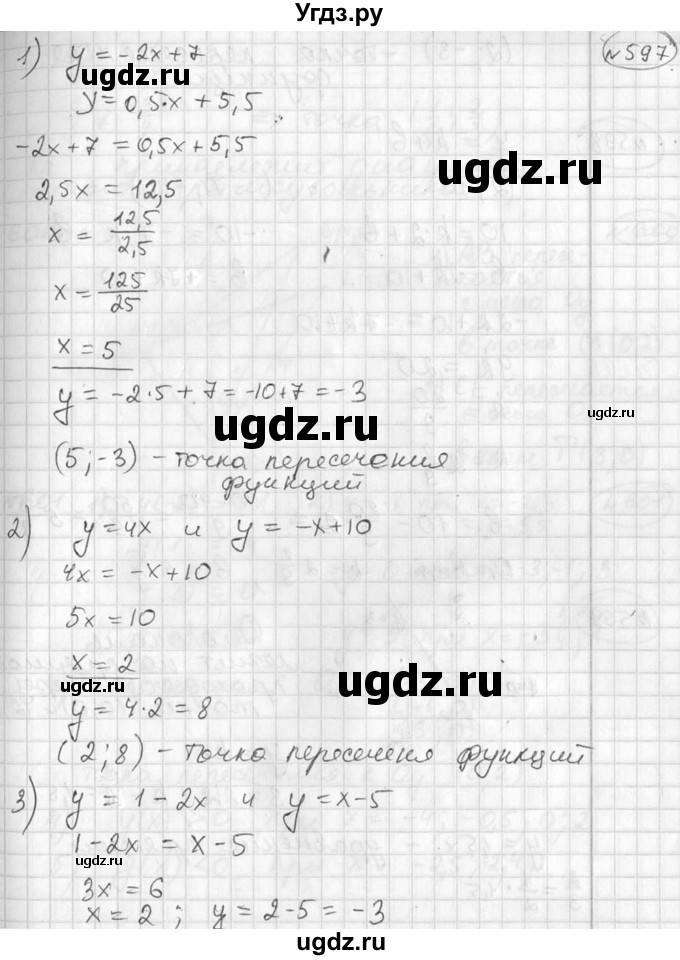 Угдз.ру
1) y = -2x + 7
№597
y = 0,5·x + 5,5
-2x + 7 = 0,5x + 5,5
2,5x = 12,5
x = 12,5/2,5
x = 125/25
x = 5
y = -2·5 + 7 = -10+7 = -3
(5; -3) - точка пересечения
функций
2) y = 4x и y = -x+10
4x = -x+10
5x = 10
x = 2
y = 4·2 = 8
(2; 8) - точка пересеченя функций
3) y = 1 - 2x и y = x - 5
1 - 2x = x - 5
3x = 6
x = 2 ; y = 2 - 5 = -3
ugdz.ru
ugdz.ru
ugdz.ru
ugdz.ru
ugdz.ru
ugdz.ru
ugdz.ru
ugdz.ru